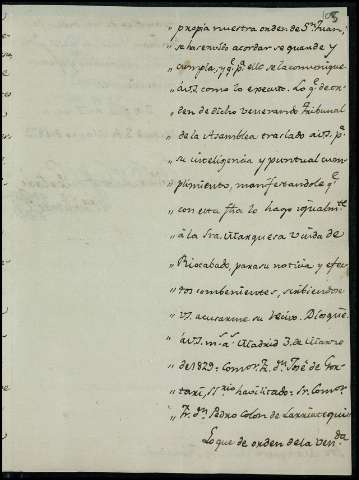 „ propia nuestra orden de Sn. Juan,
„ se ha servido acordar se guarde y
„ cumpla, y qe. pa. ello se la comunique
„ a V.S. como lo executo. Lo qe. de or-
„ den de dicho venerando Tribunal
„ de la Asamblea traslado a V.S. pa.
„ su inteligencia y puntual cum-
„ plimiento, manifestandole qe.
„ con esta fha lo hago igualmte.
„ á la Sra. Marquesa viuda de
„ Riocabado, para su noticia y efec-
„ tos combenientes, sirbiendose
„ V.S. acusarme su recivo. Dios gue.
„ á V.S. ms. as. Madrid 3. de Marzo
„ de 1829 = Comor. Fr. dn. José de Gor-
„ tari, Srio. havilitado = Sr. Comor.
„ Fr. dn. Pedro Colon de Larriategui
Lo que de orden de la venda.